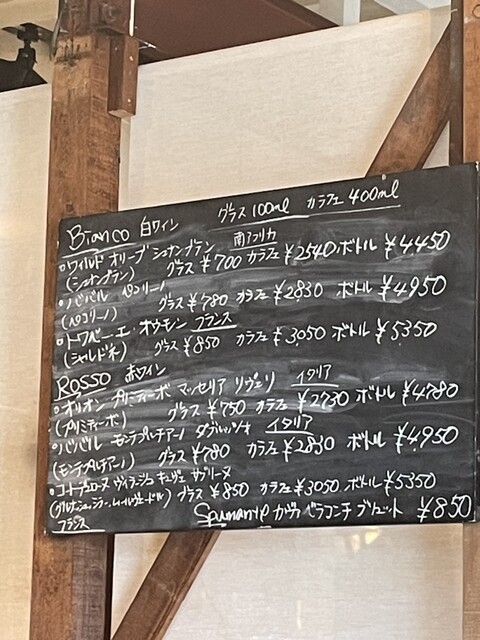 Bianco 白ワイン グラス 100ml カラフェ 400ml
・ワイルド オリーブ シュナンブラン 南アフリカ
(シュナンブラン) グラス ¥700 カラフェ ¥2540 ボトル ¥4450
・ババル ペコリーノ
(ペコリーノ) グラス ¥780 カラフェ ¥2830 ボトル ¥4950
・トワベー・エ・オゥモン フランス
(シャルドネ) グラス ¥850 カラフェ ¥3050 ボトル ¥5350
Rosso 赤ワイン
・オリオン プリミティーボ マッセリア リヴェリ イタリア
(プリミティーボ) グラス ¥750 カラフェ ¥2730 ボトル ¥4780
・ババル モンテプルチアーノ ダブルッツォ イタリア
(モンテプルチアーノ) グラス ¥780 カラフェ ¥2830 ボトル ¥4950
・コートデュローヌ ヴィラージュ キュヴェ サブリーヌ
(グルナッシュ・シラー・ムールヴェードル) グラス ¥850 カラフェ ¥3050 ボトル ¥5350
フランス
Spumante ガヴィ ベラコンチ ブリュット ¥850